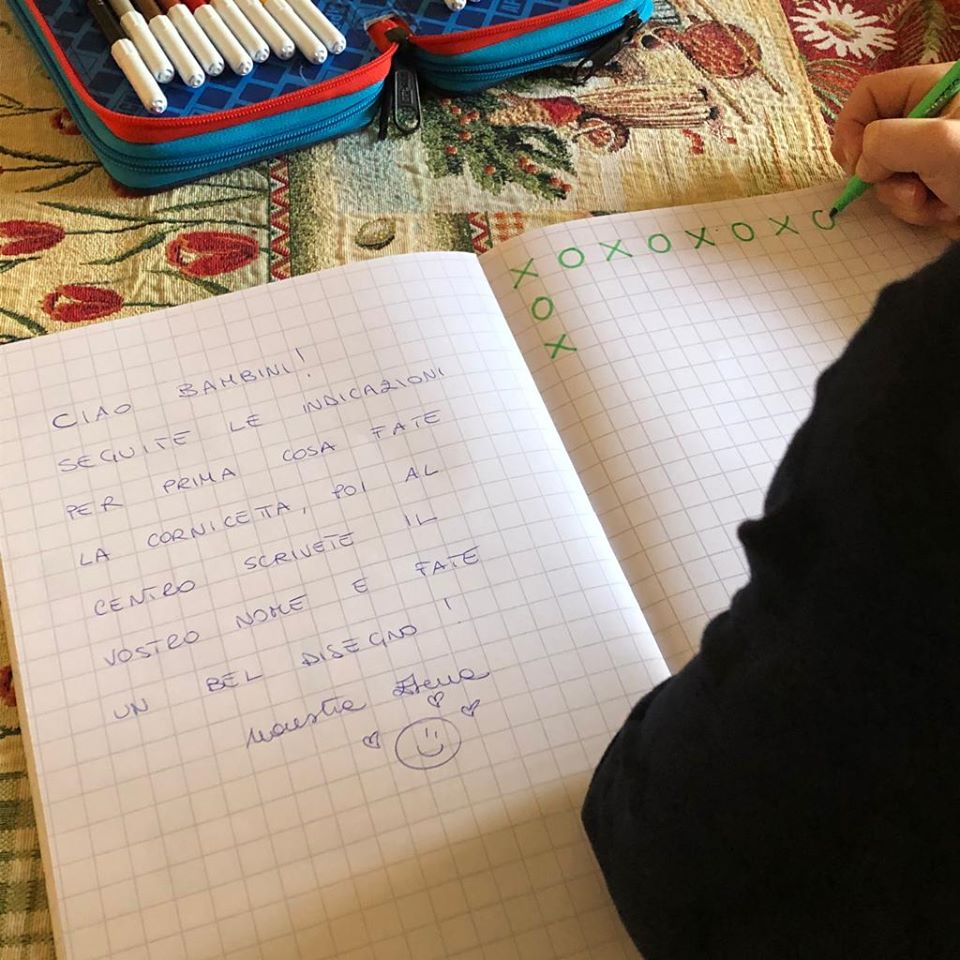 CIAO BAMBINI!
SEGUITE LE INDICAZIONI
PER PRIMA COSA FATE
LA CORNICETTA, POI AL
CENTRO SCRIVETE IL
VOSTRO NOME E FATE
UN BEL DISEGNO!
Maestra Elena
X O X O X O X O
O
X